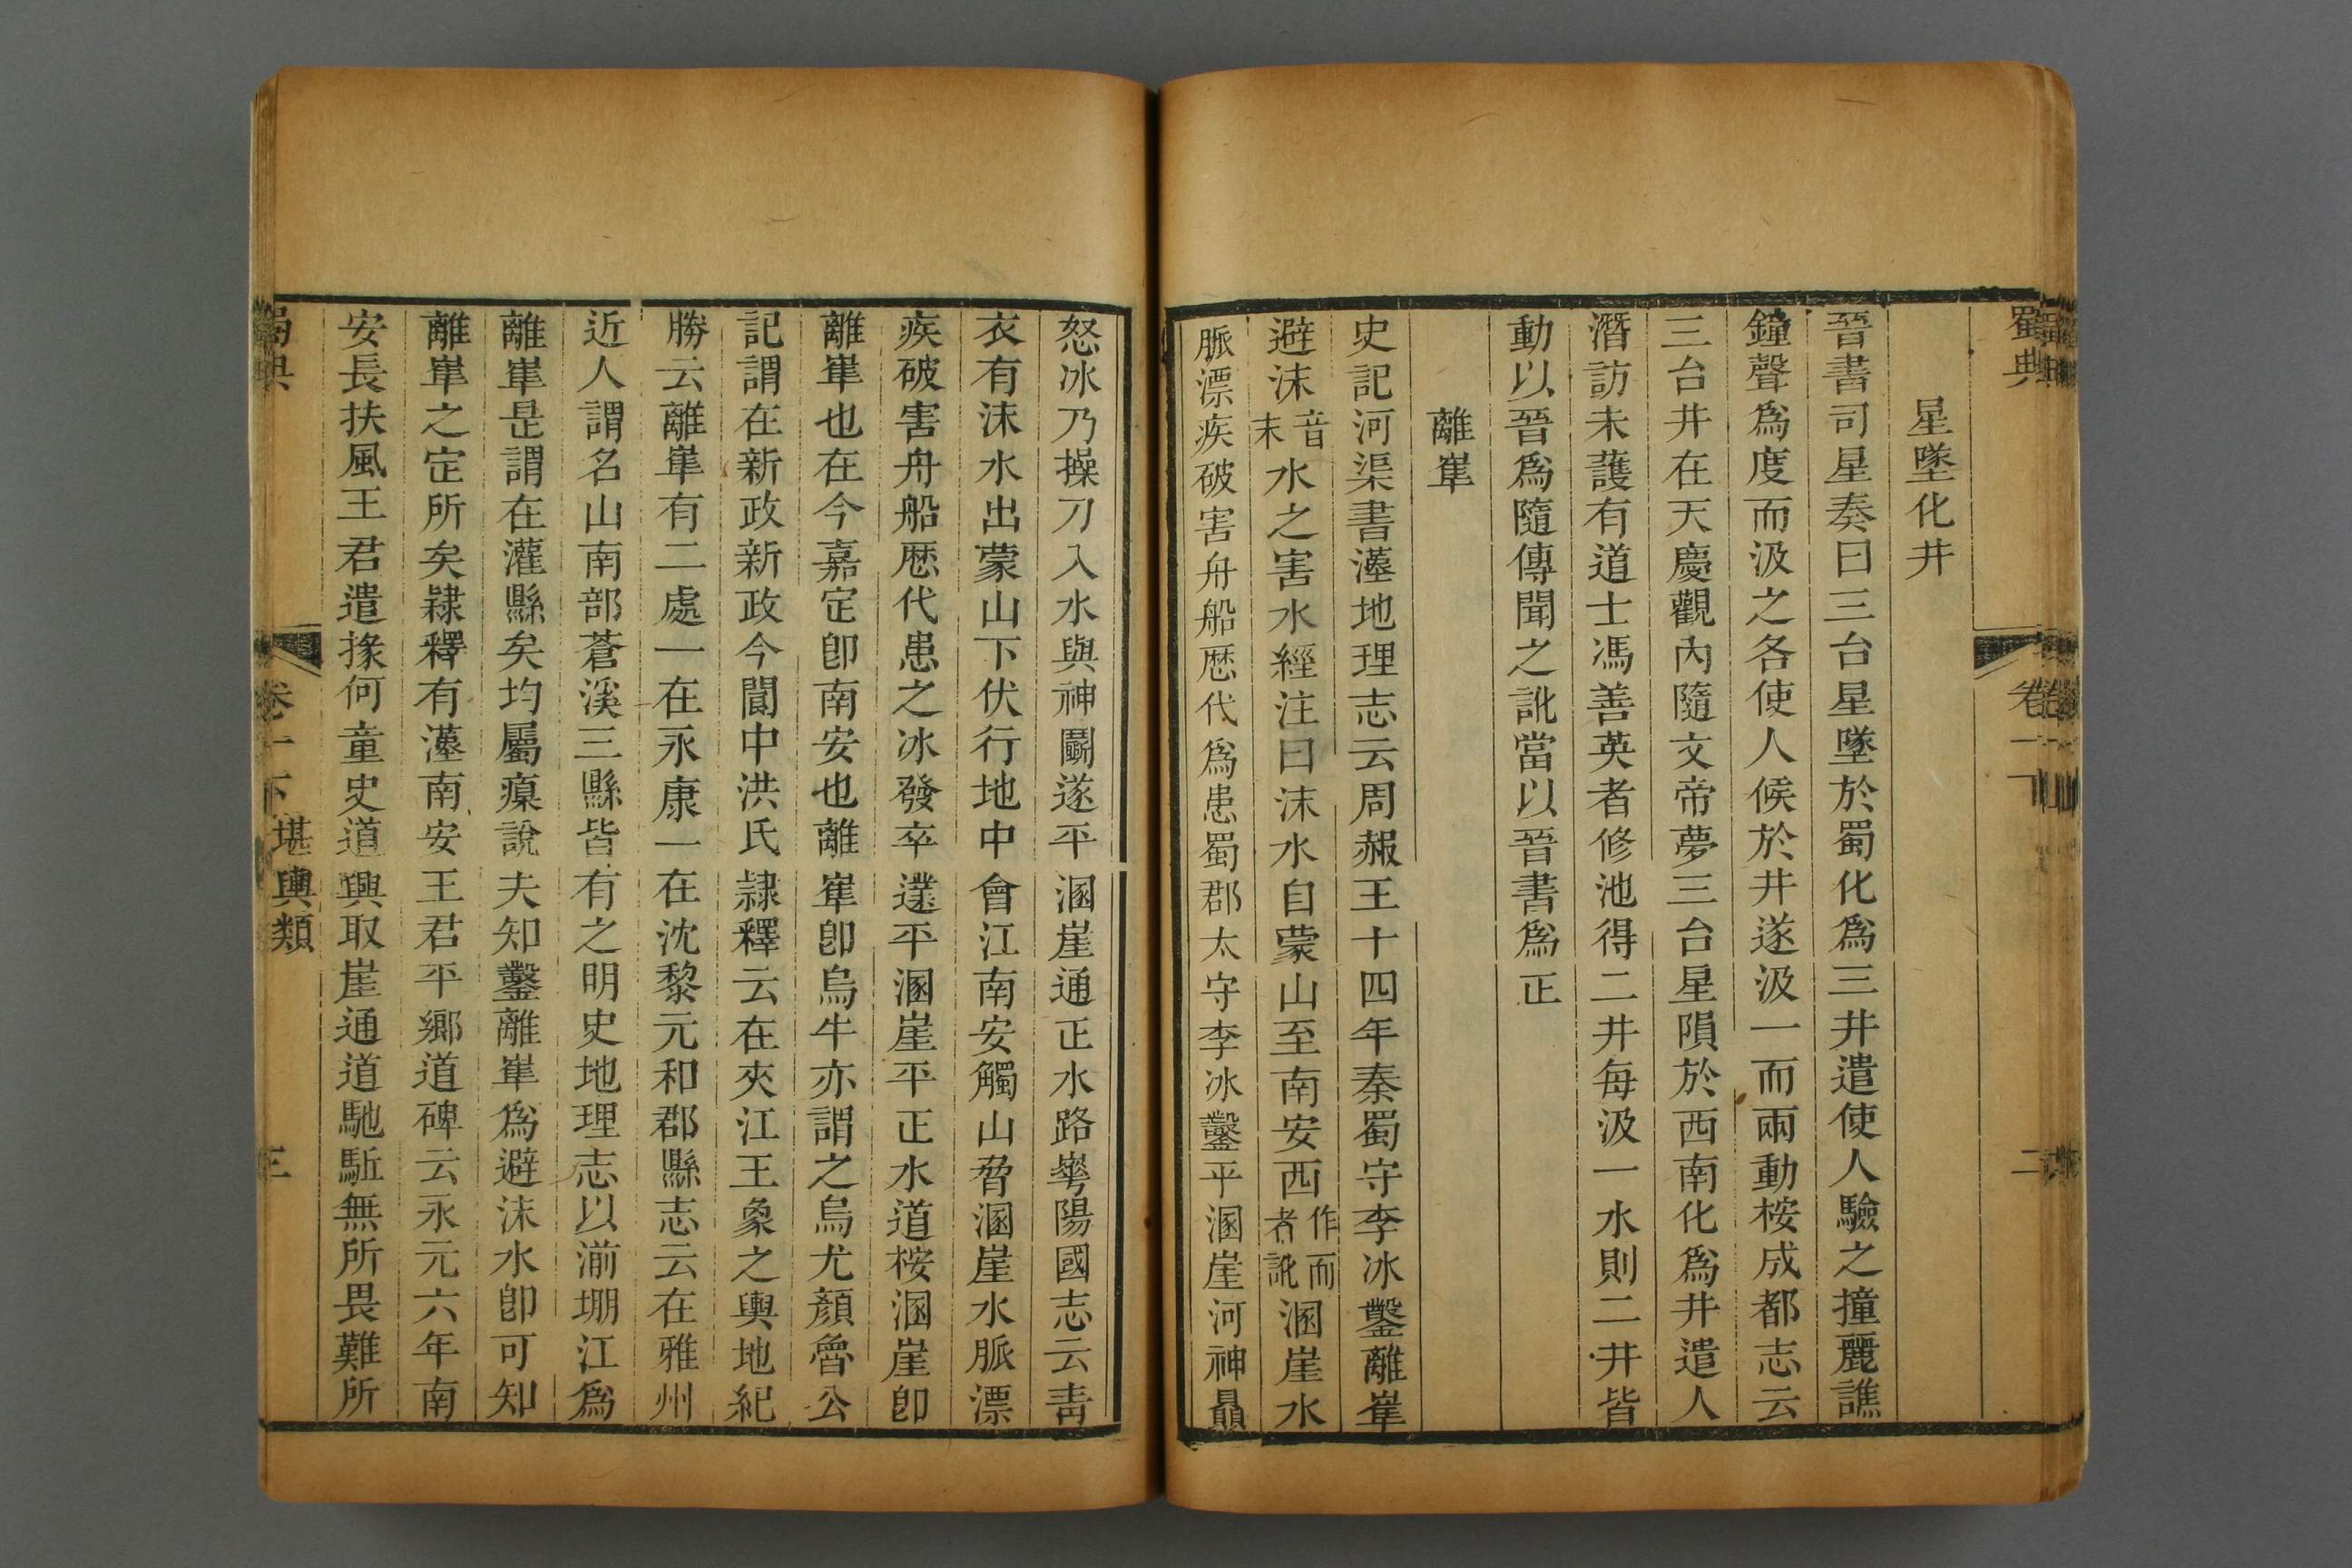 蜀典
卷一下
二
星墜化井
晉書司星奏曰三台星墜於蜀化爲三井遣使人驗之撞麗譙
鐘聲爲度而汲之各使人候於井遂汲一而兩動桉成都志云
三台井在天慶觀內隨文帝夢三台星隕於西南化爲井遣人
潛訪未獲有道士馮善英者修池得二井每汲一水則二井皆
動以晉爲隨傳聞之訛當以晉書爲正
離崋
史記河渠書瀍地理志云周赧王十四年秦蜀守李冰鑿離崋
避沫音末水之害水經注曰沫水自蒙山至南安西作而者訛溷崖水
脈漂疾破害舟船歷代爲患蜀郡太守李冰鑿平溷崖河神贔
怒冰乃操刀入水與神鬭遂平溷崖通正水路崋陽國志云青
衣有沫水出蒙山下伏行地中會江南安觸山脅溷崖水脈漂
疾破害舟船歷代患之冰發卒鑿平溷崖平正水道桉溷崖卽
離崋也在今嘉定卽南安也離崋卽烏牛亦謂之烏尤顏魯公
記謂在新政新政今閬中洪氏隷釋云在夾江王象之輿地紀
勝云離崋有二處一在永康一在沈黎元和郡縣志云在雅州
近人謂名山南部蒼溪三縣皆有之明史地理志以湔堋江爲
離崋是謂在灌縣矣均屬瘨說夫知鑿離崋爲避沫水卽可知
離崋之定所矣隷釋有瀍南安王君平鄉道碑云永元六年南
安長扶風王君遣掾何童史道興取崖通道馳駈無所畏難所
蜀典
卷一下
堪輿類
三